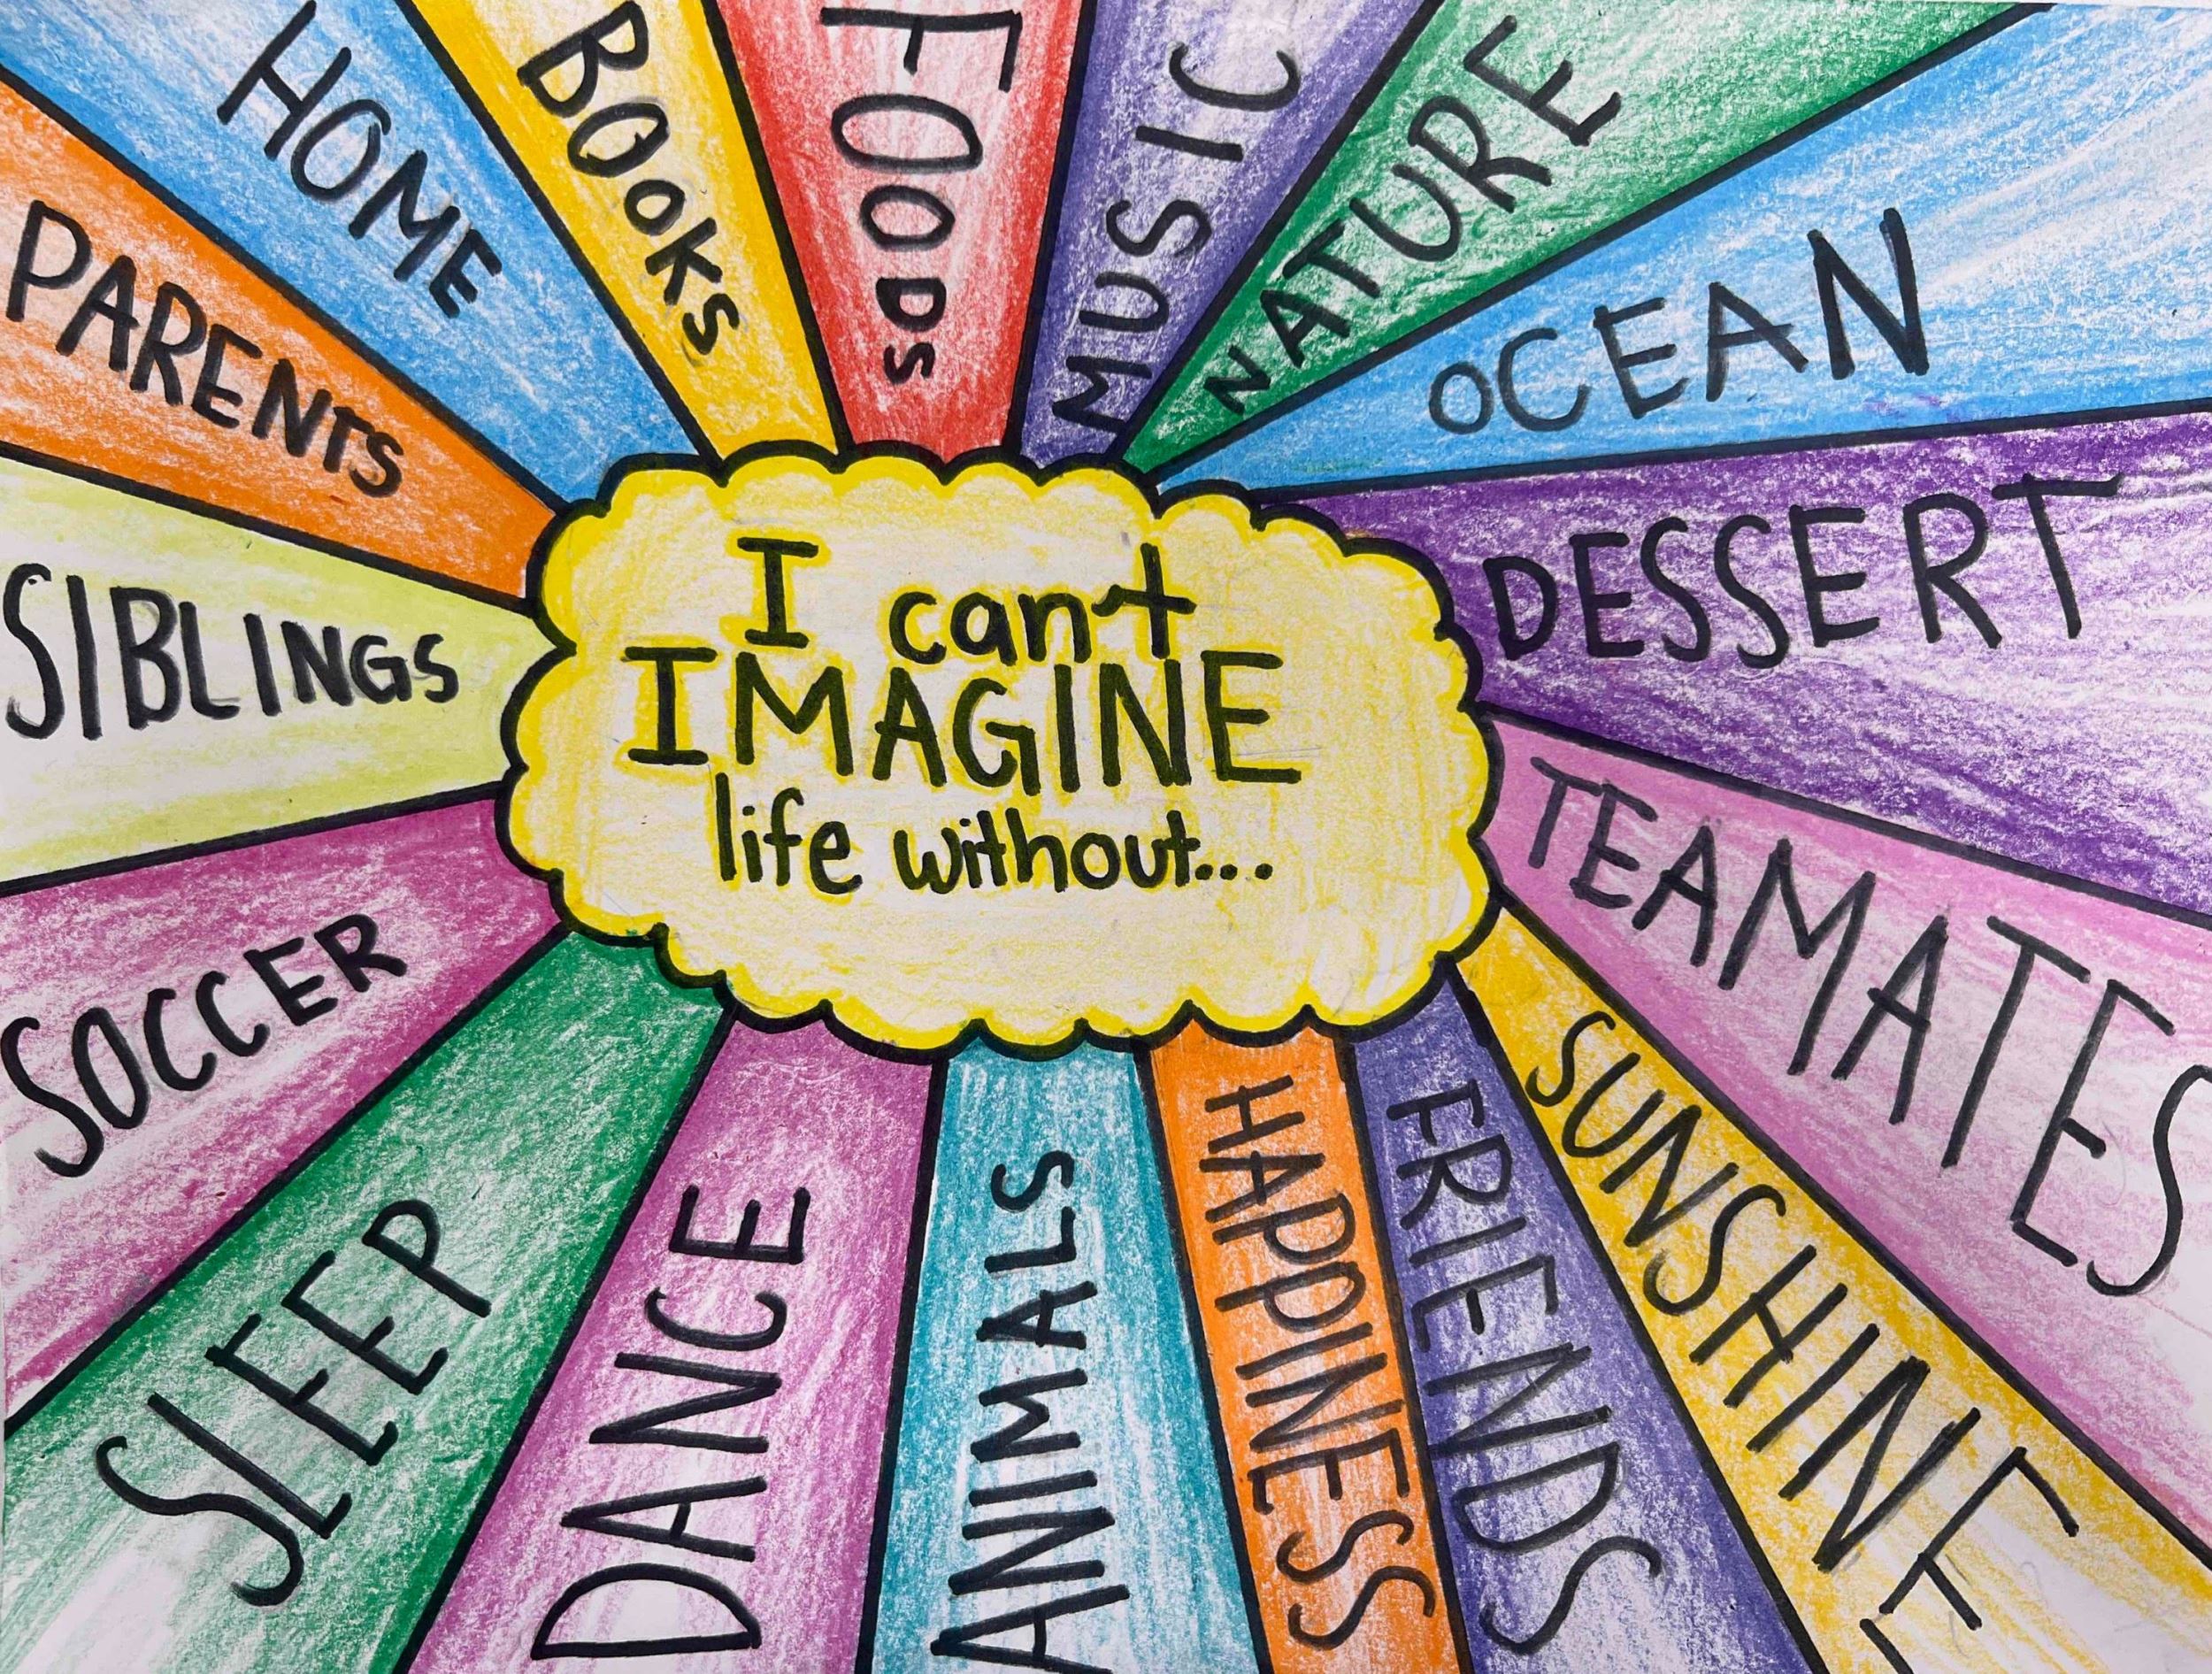 I can't
IMAGINE
life without...
HOME
BOOKS
FOODS
MUSIC
NATURE
OCEAN
DESSERT
TEAMATES
SUNSHINE
FRIENDS
HAPPINESS
ANIMALS
DANCE
SLEEP
SOCCER
SIBLINGS
PARENTS